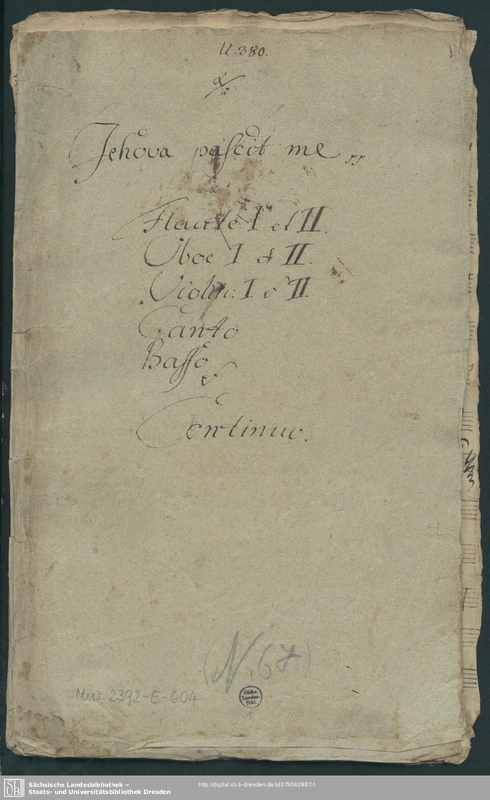 U. 380.
Jehova pascit me
a
Flaute I et II.
Oboe I et II.
Violin: I e II.
Canto
Basso
e
Continuo.
(N. 67)
Mus. 2392-E-604
Sächs. Landes-Bibl.
SLUB
Sächsische Landesbibliothek –
Staats- und Universitätsbibliothek Dresden
http://digital.slub-dresden.de/id379062887/1